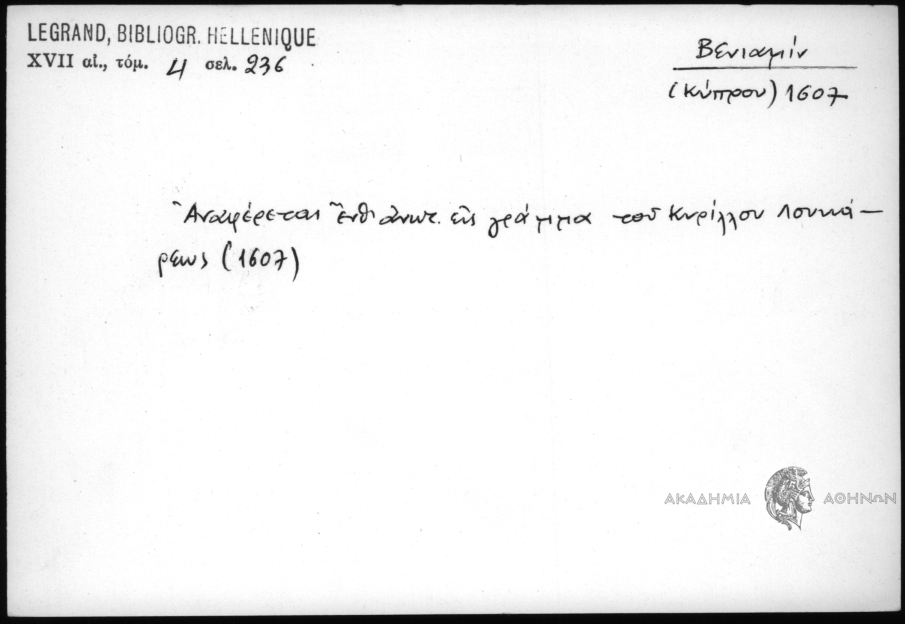 LEGRAND, BIBLIOGR. HELLENIQUE
XVII αἰ., τόμ. 4 σελ. 236
Βενιαμίν
(Κύπρου) 1607
Ἀναφέρεται ἔνθ' ἀνωτ. εἰς γράμμα τοῦ Κυρίλλου Λουκά-
ρεως (1607)
ΑΚΑΔΗΜΙΑ ΑΘΗΝΩΝ